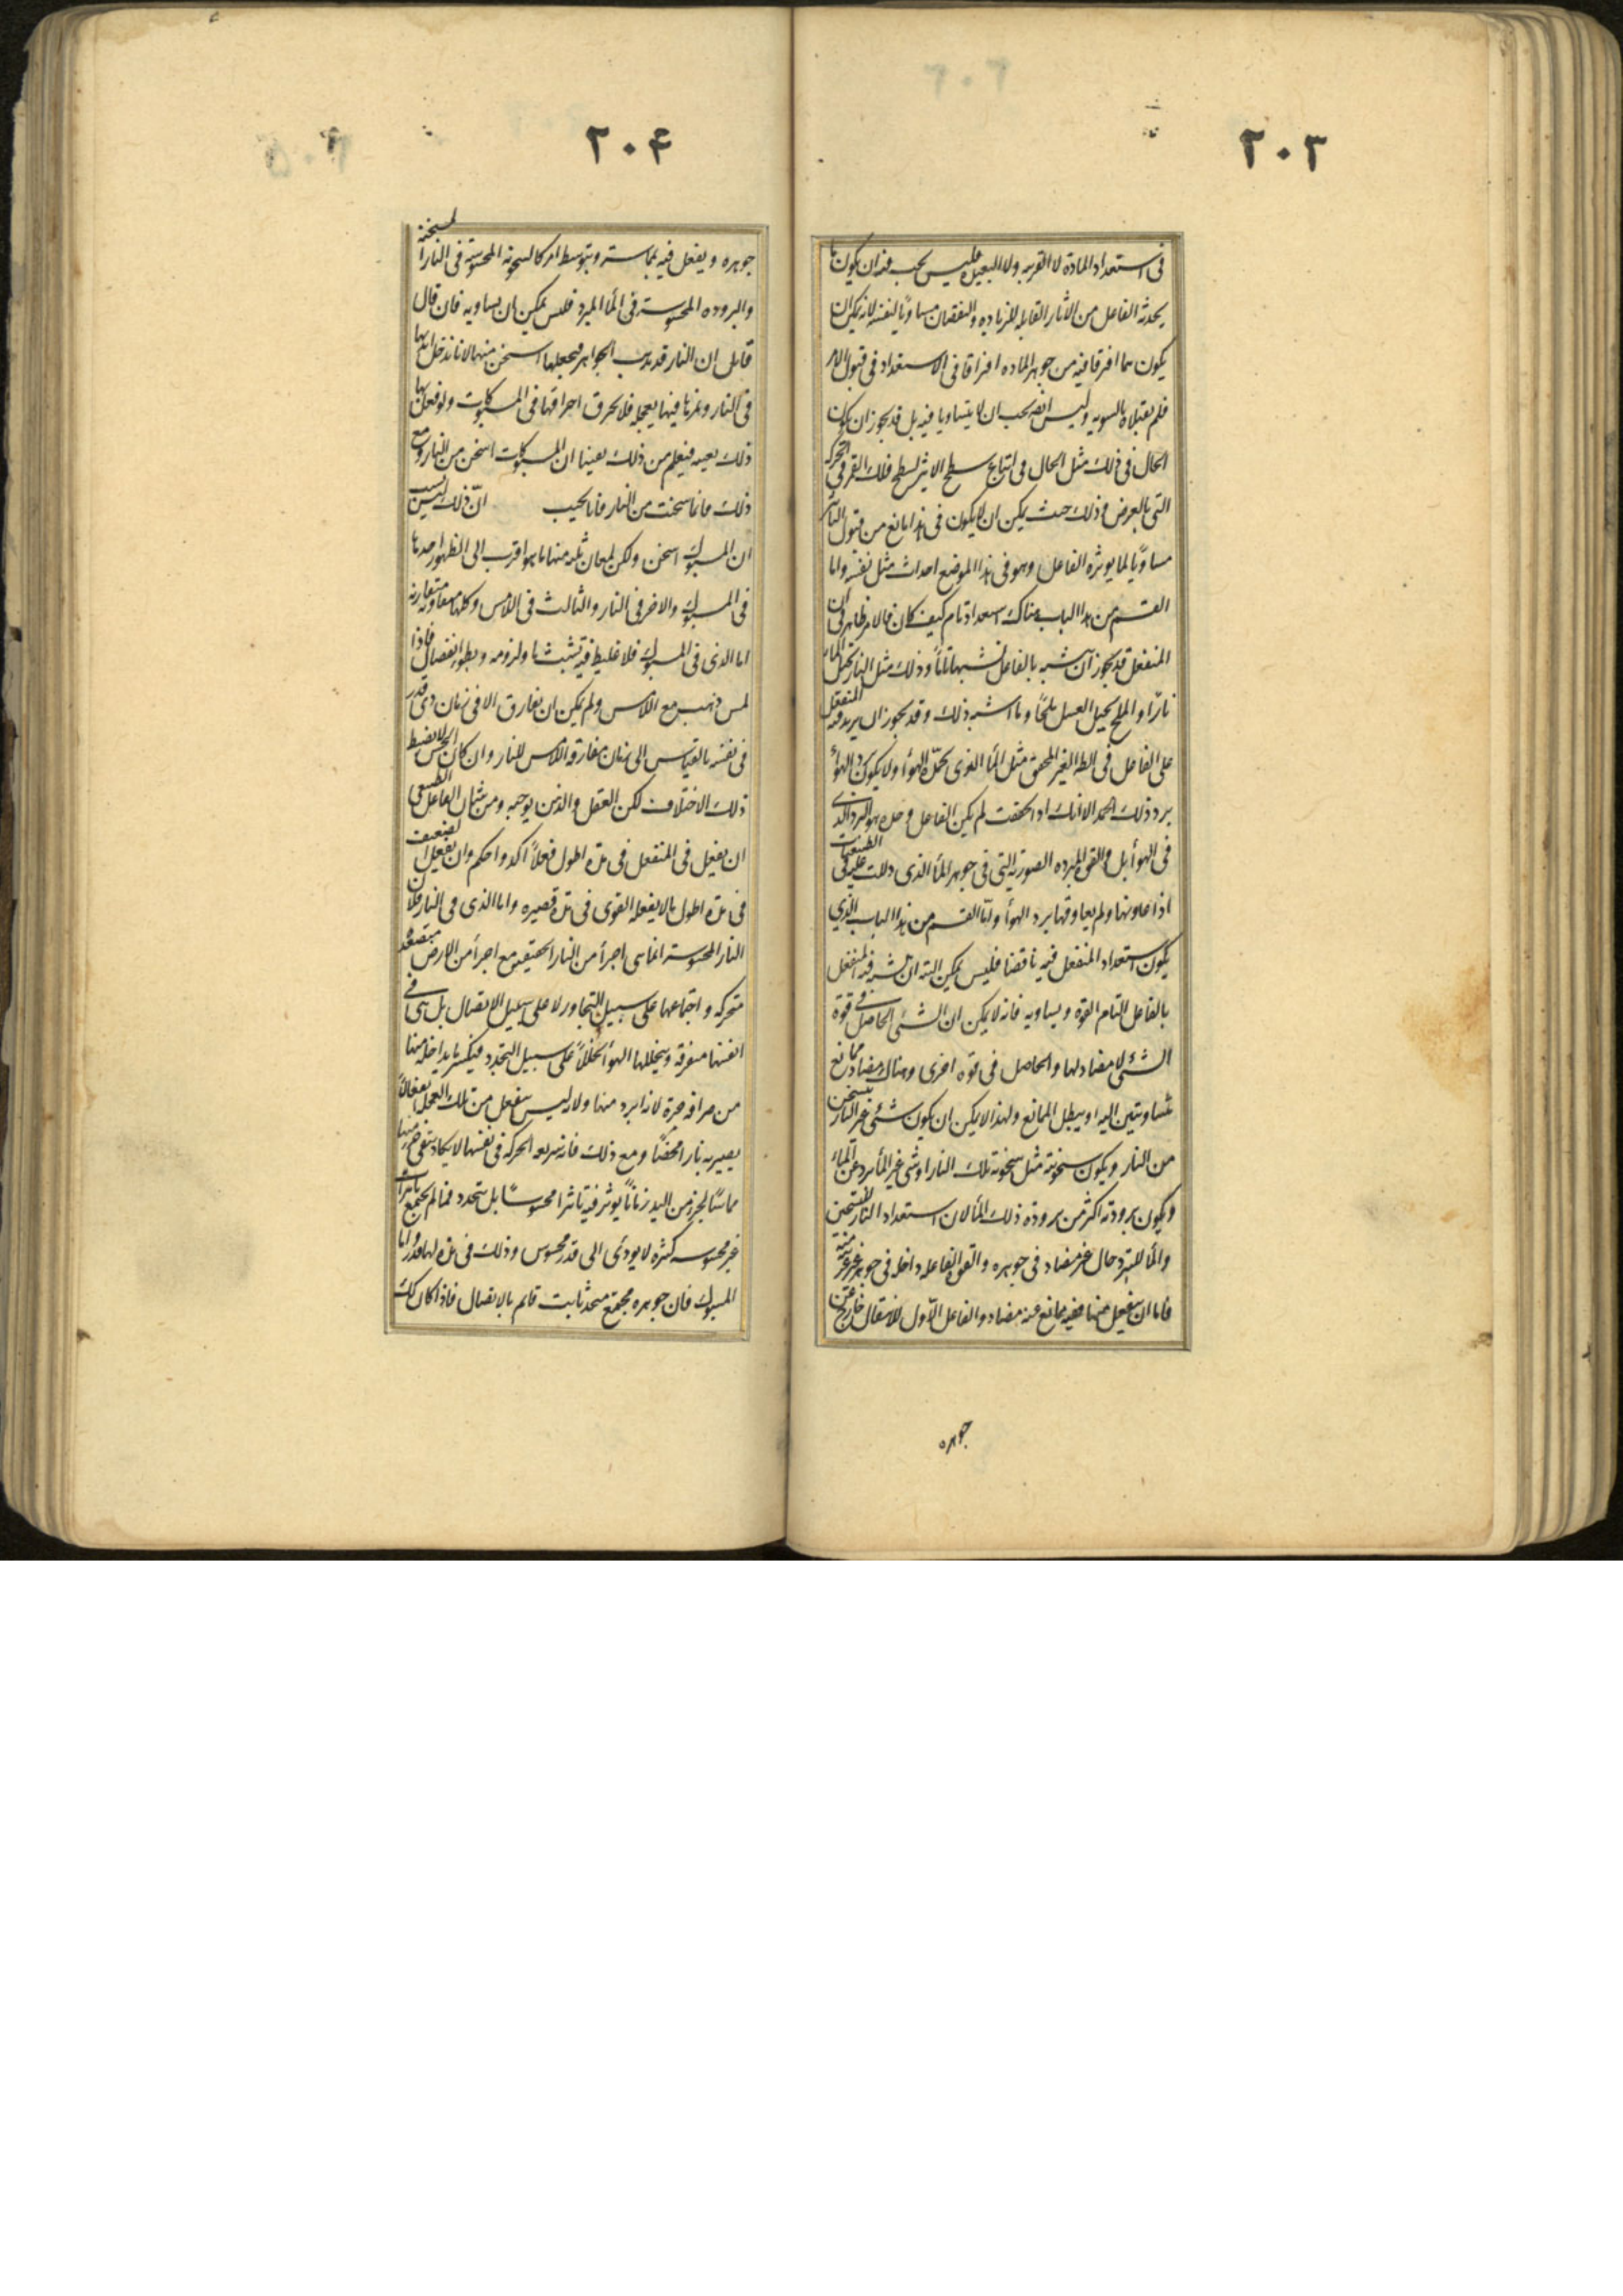 ٢٠٣
فى استعداد المادة لا القريبه ولا البعيده فليس يجب فيه ان يكون ما
يحدثه الفاعل من الاثار القابله للزياده والنقصان مساويا لنفسه لانه يمكن ان
يكون ما افترقا فيه من جوهر الماده افتراقا فى الاستعداد فى قبول الامر
فلم يقبلاه بالسويه وليس ايضا يجب ان لا يتساويا فيه بل قد يجوز ان يكون
الحال فى ذلك مثل الحال فى اتباع سطح الاثير لسطح فلك القمر فى الحركه
التى بالعرض وذلك حيث يمكن ان لا يكون فى هذا مانع من قبول التأثير
مساويًا لما يوثره الفاعل وهو فى هذا الموضع احداث مثل نفسه واما
القسم من هذا الباب هناك استعداد تام كيف كان فالامر ظاهر فى ان
المنفعل قد يجوز ان يتشبه بالفاعل تشبها تامًا وذلك مثل النار تحيل الماء
نارًا والملح يحيل العسل ملحًا وما اشبه ذلك وقد يجوز ان يزيد فيه المنفعل
على الفاعل فى الظاهر الغير المحقق مثل الماء الذى يجمّده الهواء ولا يكون برد الهواء
برد ذلك الجمد الا انك اذا تحققت لم يكن الفاعل وحده هو البرد الذى
فى الهواء بل والقوه المبرده الصوريه التى فى جوهر الماء الذى دللت عليه فى الطبيعيات
اذا عاونها ولم يعاوقها برد الهواء واما القسم من هذا الباب الذى
يكون استعداد المنفعل فيه ناقصا فليس يمكن البته ان يتشبه فيه المنفعل
بالفاعل التام القوه ويساويه فانه لا يمكن ان الشئ الحاصل فى قوة
الشئ لا مضاد لها والحاصل فى قوه اخرى وهناك مضاد ممانع
متساويتين البته او يبطل الممانع ولهذا لا يمكن ان يكون شئ غير النار يتسخن
من النار ويكون سخونته مثل سخونة تلك النار او شى غير الماء يبرد عن الماء
ويكون برودته اكثر من برودة ذلك الماء لان استعداد النار للتسخين
والماء للتبرد حال غير مضاد فى جوهره والقوة الفاعله داخله فى جوهره غير غريبة منه
فاما ان ينفعل عنها ففيه ممانع عنه مضاد والفاعل الاول للانفعال خارج عن
جوهره
٢٠۴
جوهره ويفعل فيه بمماسته وبتوسط امر كالسخونه المحسوسة فى النار المسخنة
والبروده المحسوسة فى الماء المبرد فليس يمكن ان يساويه فان قال
قائل ان النار قد تذيب الجواهر فيجعلها اسخن منها لانا ندخل ايدينا
فى النار ونمرها فيها بعجله فلا يحرق احراقها فى المسبوكات ولو فعل بها
ذلك بعينه فيعلم من ذلك يقينا ان المسبوكات اسخن من النار ومع
ذلك فانما سخنت من النار فانا نجيب انّ ذلك ليس لسبب
ان المسبوك اسخن ولكن لمعان ثلثه منها ما هو اقرب الى الظهور احدها
فى المسبوك والاخر فى النار والثالث فى اللامس وكلها متعاونه متقاربة
اما الذى فى المسبوك فلانه غليظ فيه تشبث ما ولزوجه وبطو انفصال فاذا
لمس ذهب مع اللامس ولم يمكن ان يفارق الا فى زمان ذى قدر
فى نفسه بالقياس الى زمان مفارقه اللامس للنار وان كان الحس لا يضبط
ذلك الاختلاف لكن العقل والذهن يوجبه ومن شان الفاعل الطبيعى
ان يفعل فى المنفعل فى مدة اطول فعلاً اكد واحكم وان يفعل الضعيف
فى مدة اطول ما لا يفعله القوى فى مدة قصيره واما الذى فى النار فلان
النار المحسوسة انما هى اجزاء من النار الحقيقيه مع اجزاء من الارض متصعدة
متحركه واجتماعها على سبيل التجاور لا على سبيل الاتصال بل هى فى
انفسها متفرقه ويتخللها الهواء تخللاً على سبيل التجدد فيكسر ما يداخله منها
من صرافة حره لانه ابرد منها ولانه ليس ينفعل من تلك العجل انفعالاً
يصير به نارا محضًا ومع ذلك فانه سريعه الحركه فى نفسها لا يكاد يبقى جزء منها
مماسًّا لجزء من اليد زمانًا يوثر فيه تاثيرا محسوسًا بل يتجدد فما لم يجتمع تاثيرات
غير محسوسه كثيره لا يودى الى قدر محسوس وذلك فى مدة لها قدر واما
المسبوك فان جوهره مجتمع متحد ثابت قائم بالاتصال فاذا كان كك